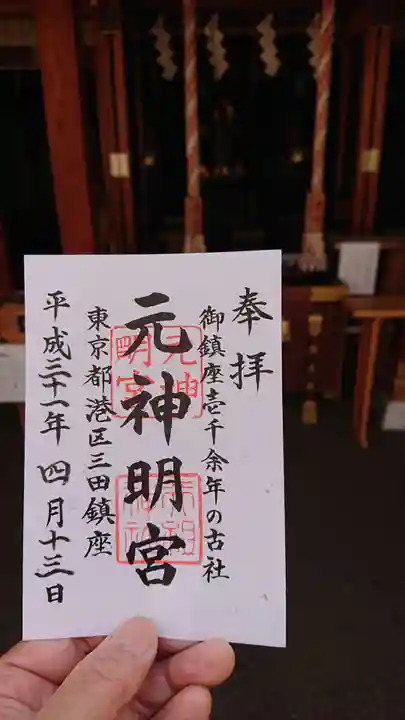 奉拝
御鎮座壱千余年の古社
元神明宮
東京都港区三田鎮座
平成三十一年四月十三日
元神明宮